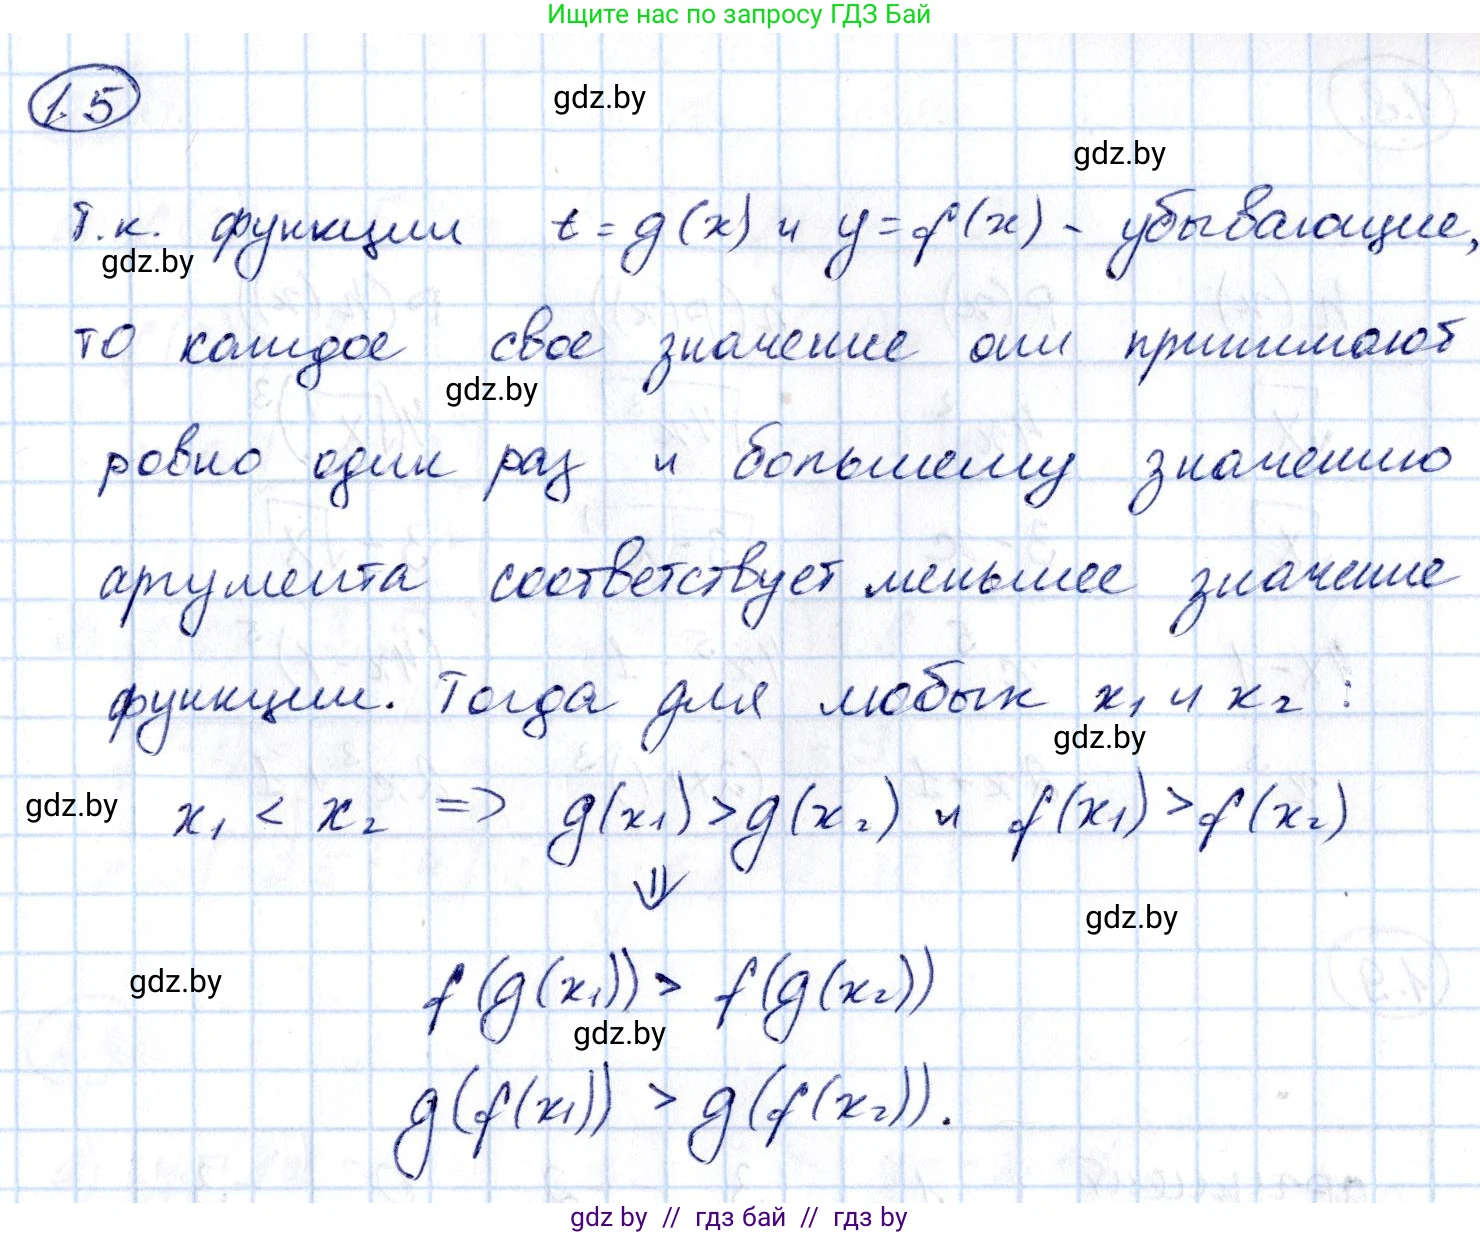 Ищите нас по запросу ГДЗ Бай
1.5
gdz.by
gdz.by
т.к. функции t = g(x) и y = f(x) - убывающие,
gdz.by
то каждое свое значение они принимают
gdz.by
ровно один раз и большему значению
аргумента соответствует меньшее значение
функции. Тогда для любых x₁ и x₂ :
gdz.by
gdz.by
x₁ < x₂ => g(x₁) > g(x₂) и f(x₁) > f(x₂)
⇓
gdz.by
f(g(x₁)) > f(g(x₂))
gdz.by
gdz.by
g(f(x₁)) > g(f(x₂)).
gdz by // гдз бай // гдз by